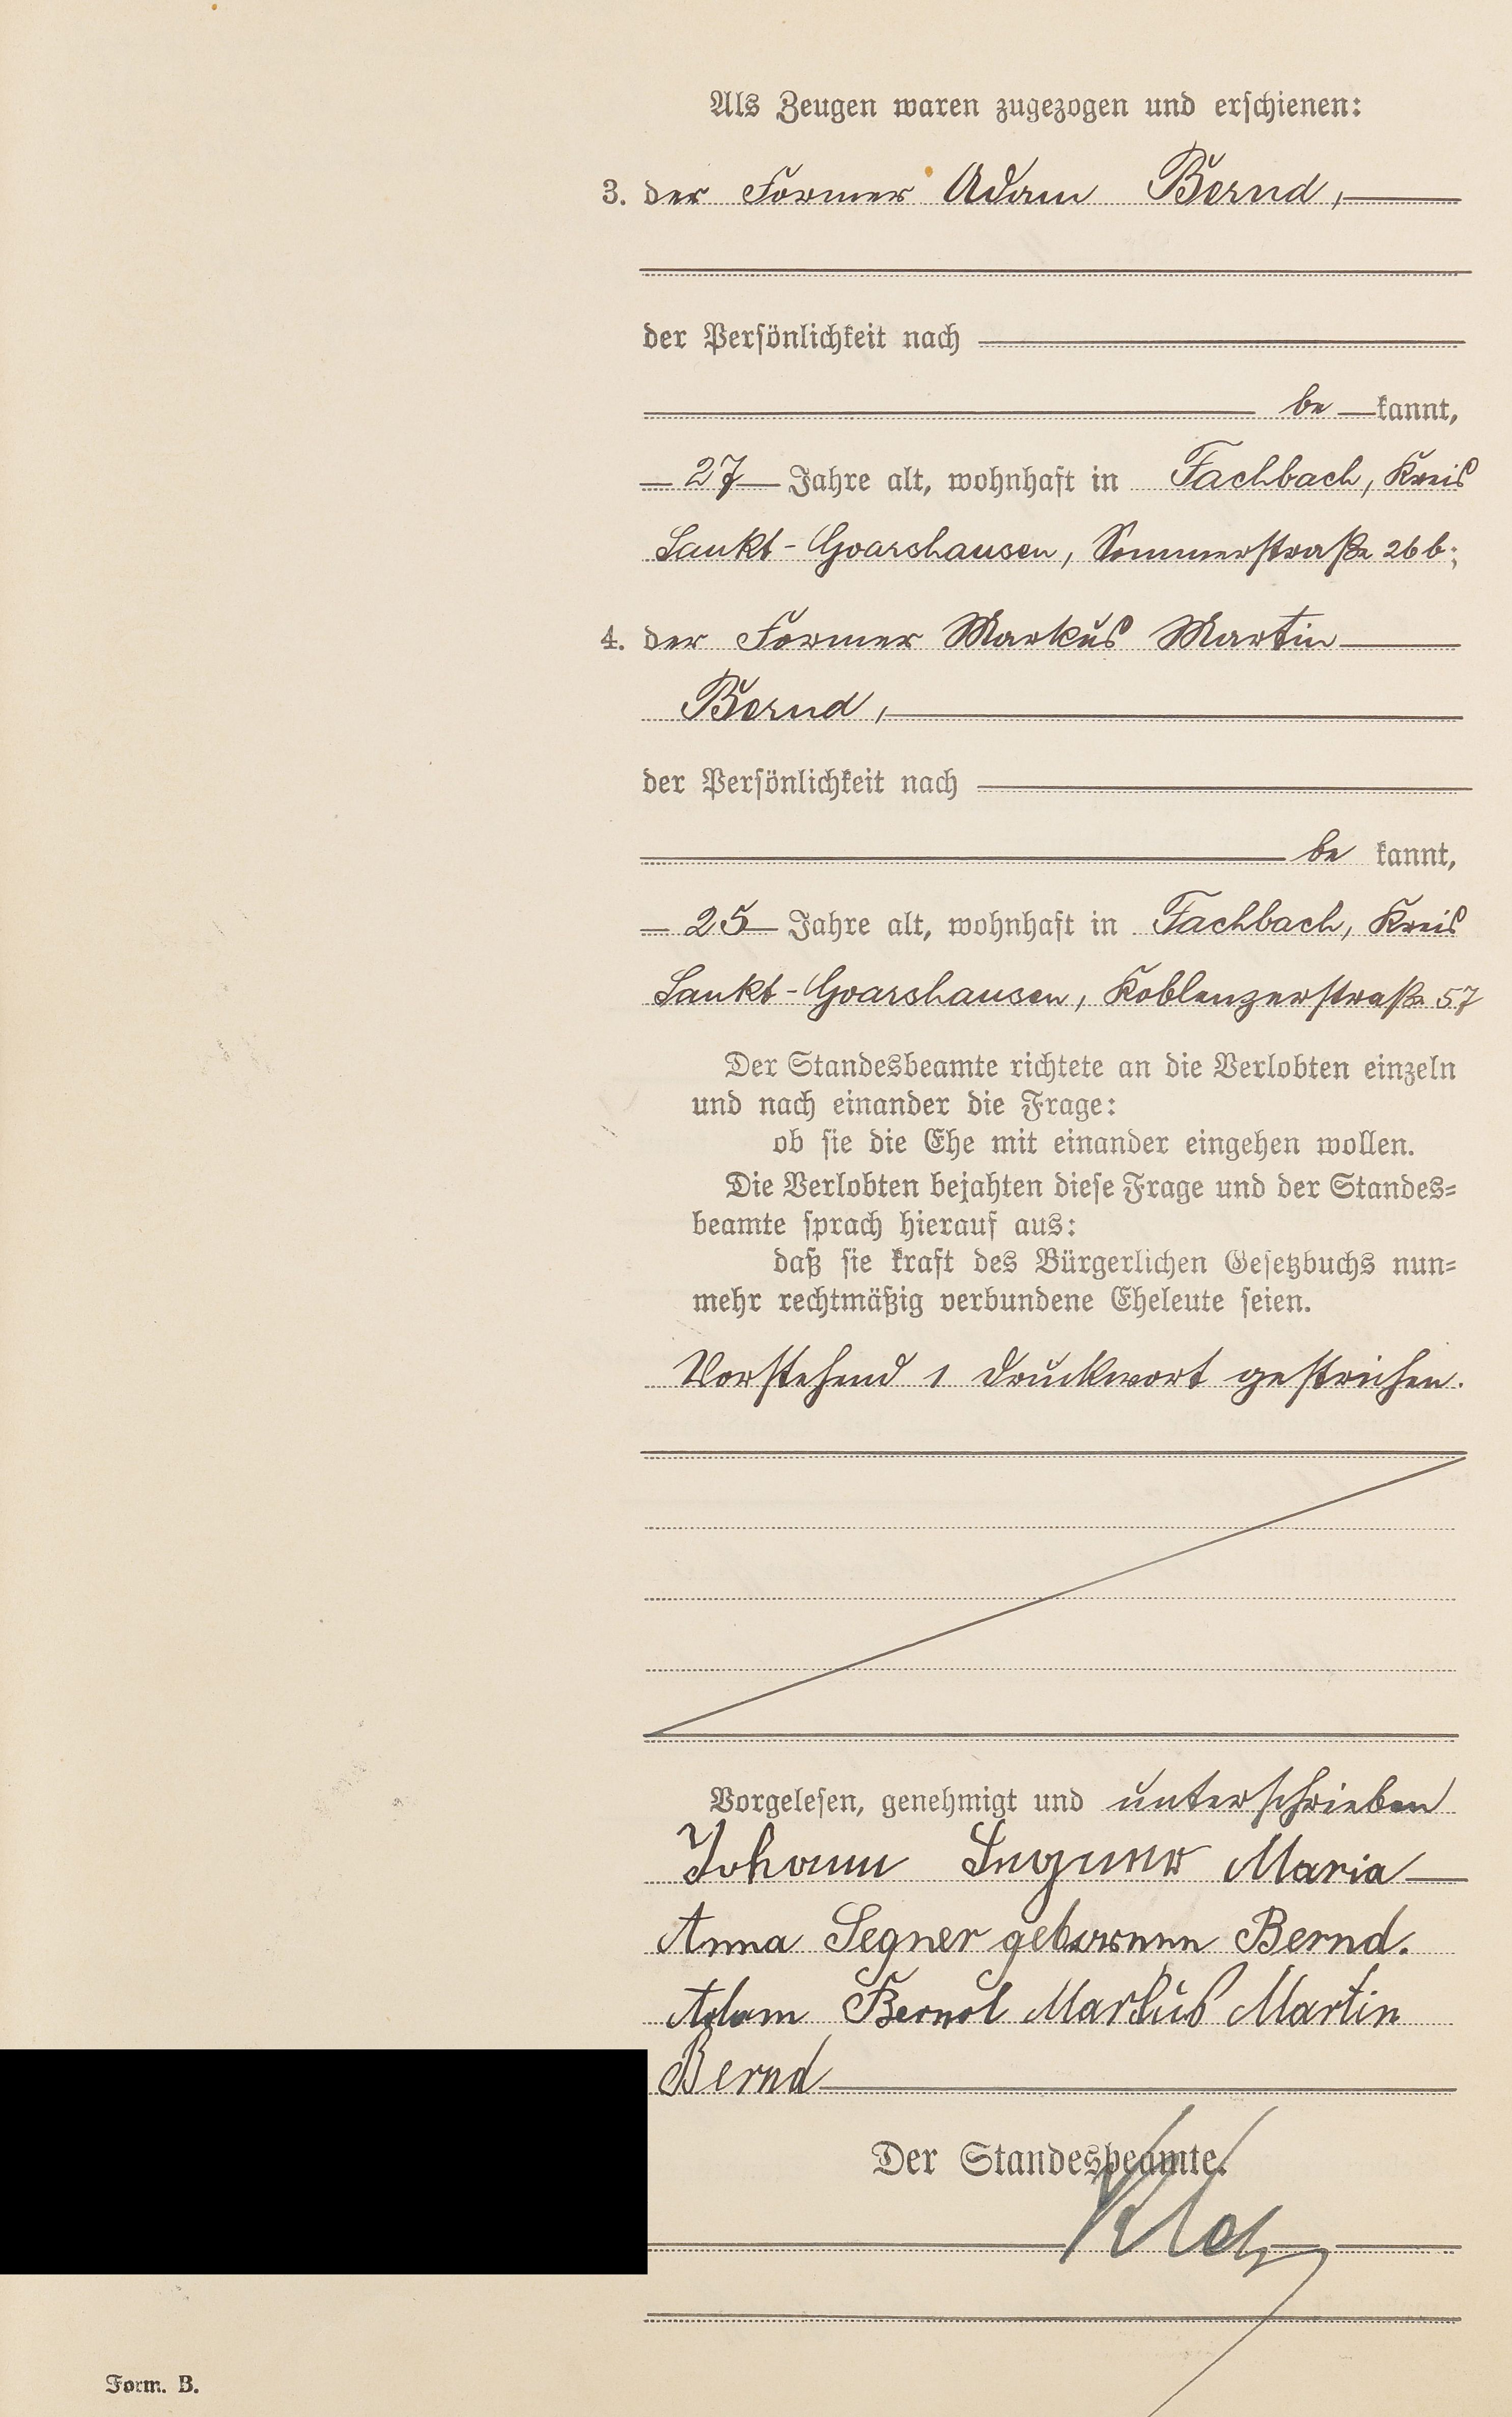 Als Zeugen waren zugezogen und erschienen:
3. der Former Adam Bernd,
der Persönlichkeit nach
be kannt,
27 Jahre alt, wohnhaft in Fachbach, Kreis
Sankt-Goarshausen, Sommerstraße 26 b;
4. der Former Markus Martin
Bernd,
der Persönlichkeit nach
be kannt,
25 Jahre alt, wohnhaft in Fachbach, Kreis
Sankt-Goarshausen, Koblenzerstraße 57
Der Standesbeamte richtete an die Verlobten einzeln
und nach einander die Frage:
ob sie die Ehe mit einander eingehen wollen.
Die Verlobten bejahten diese Frage und der Standes=
beamte sprach hierauf aus:
daß sie kraft des Bürgerlichen Gesetzbuchs nun=
mehr rechtmäßig verbundene Eheleute seien.
Vorstehend 1 Druckwort gestrichen.
Vorgelesen, genehmigt und unterschrieben
Johann Segner Maria
Anna Segner geborenen Bernd.
Adam Bernd Markus Martin
Bernd
Der Standesbeamte.
Form. B.